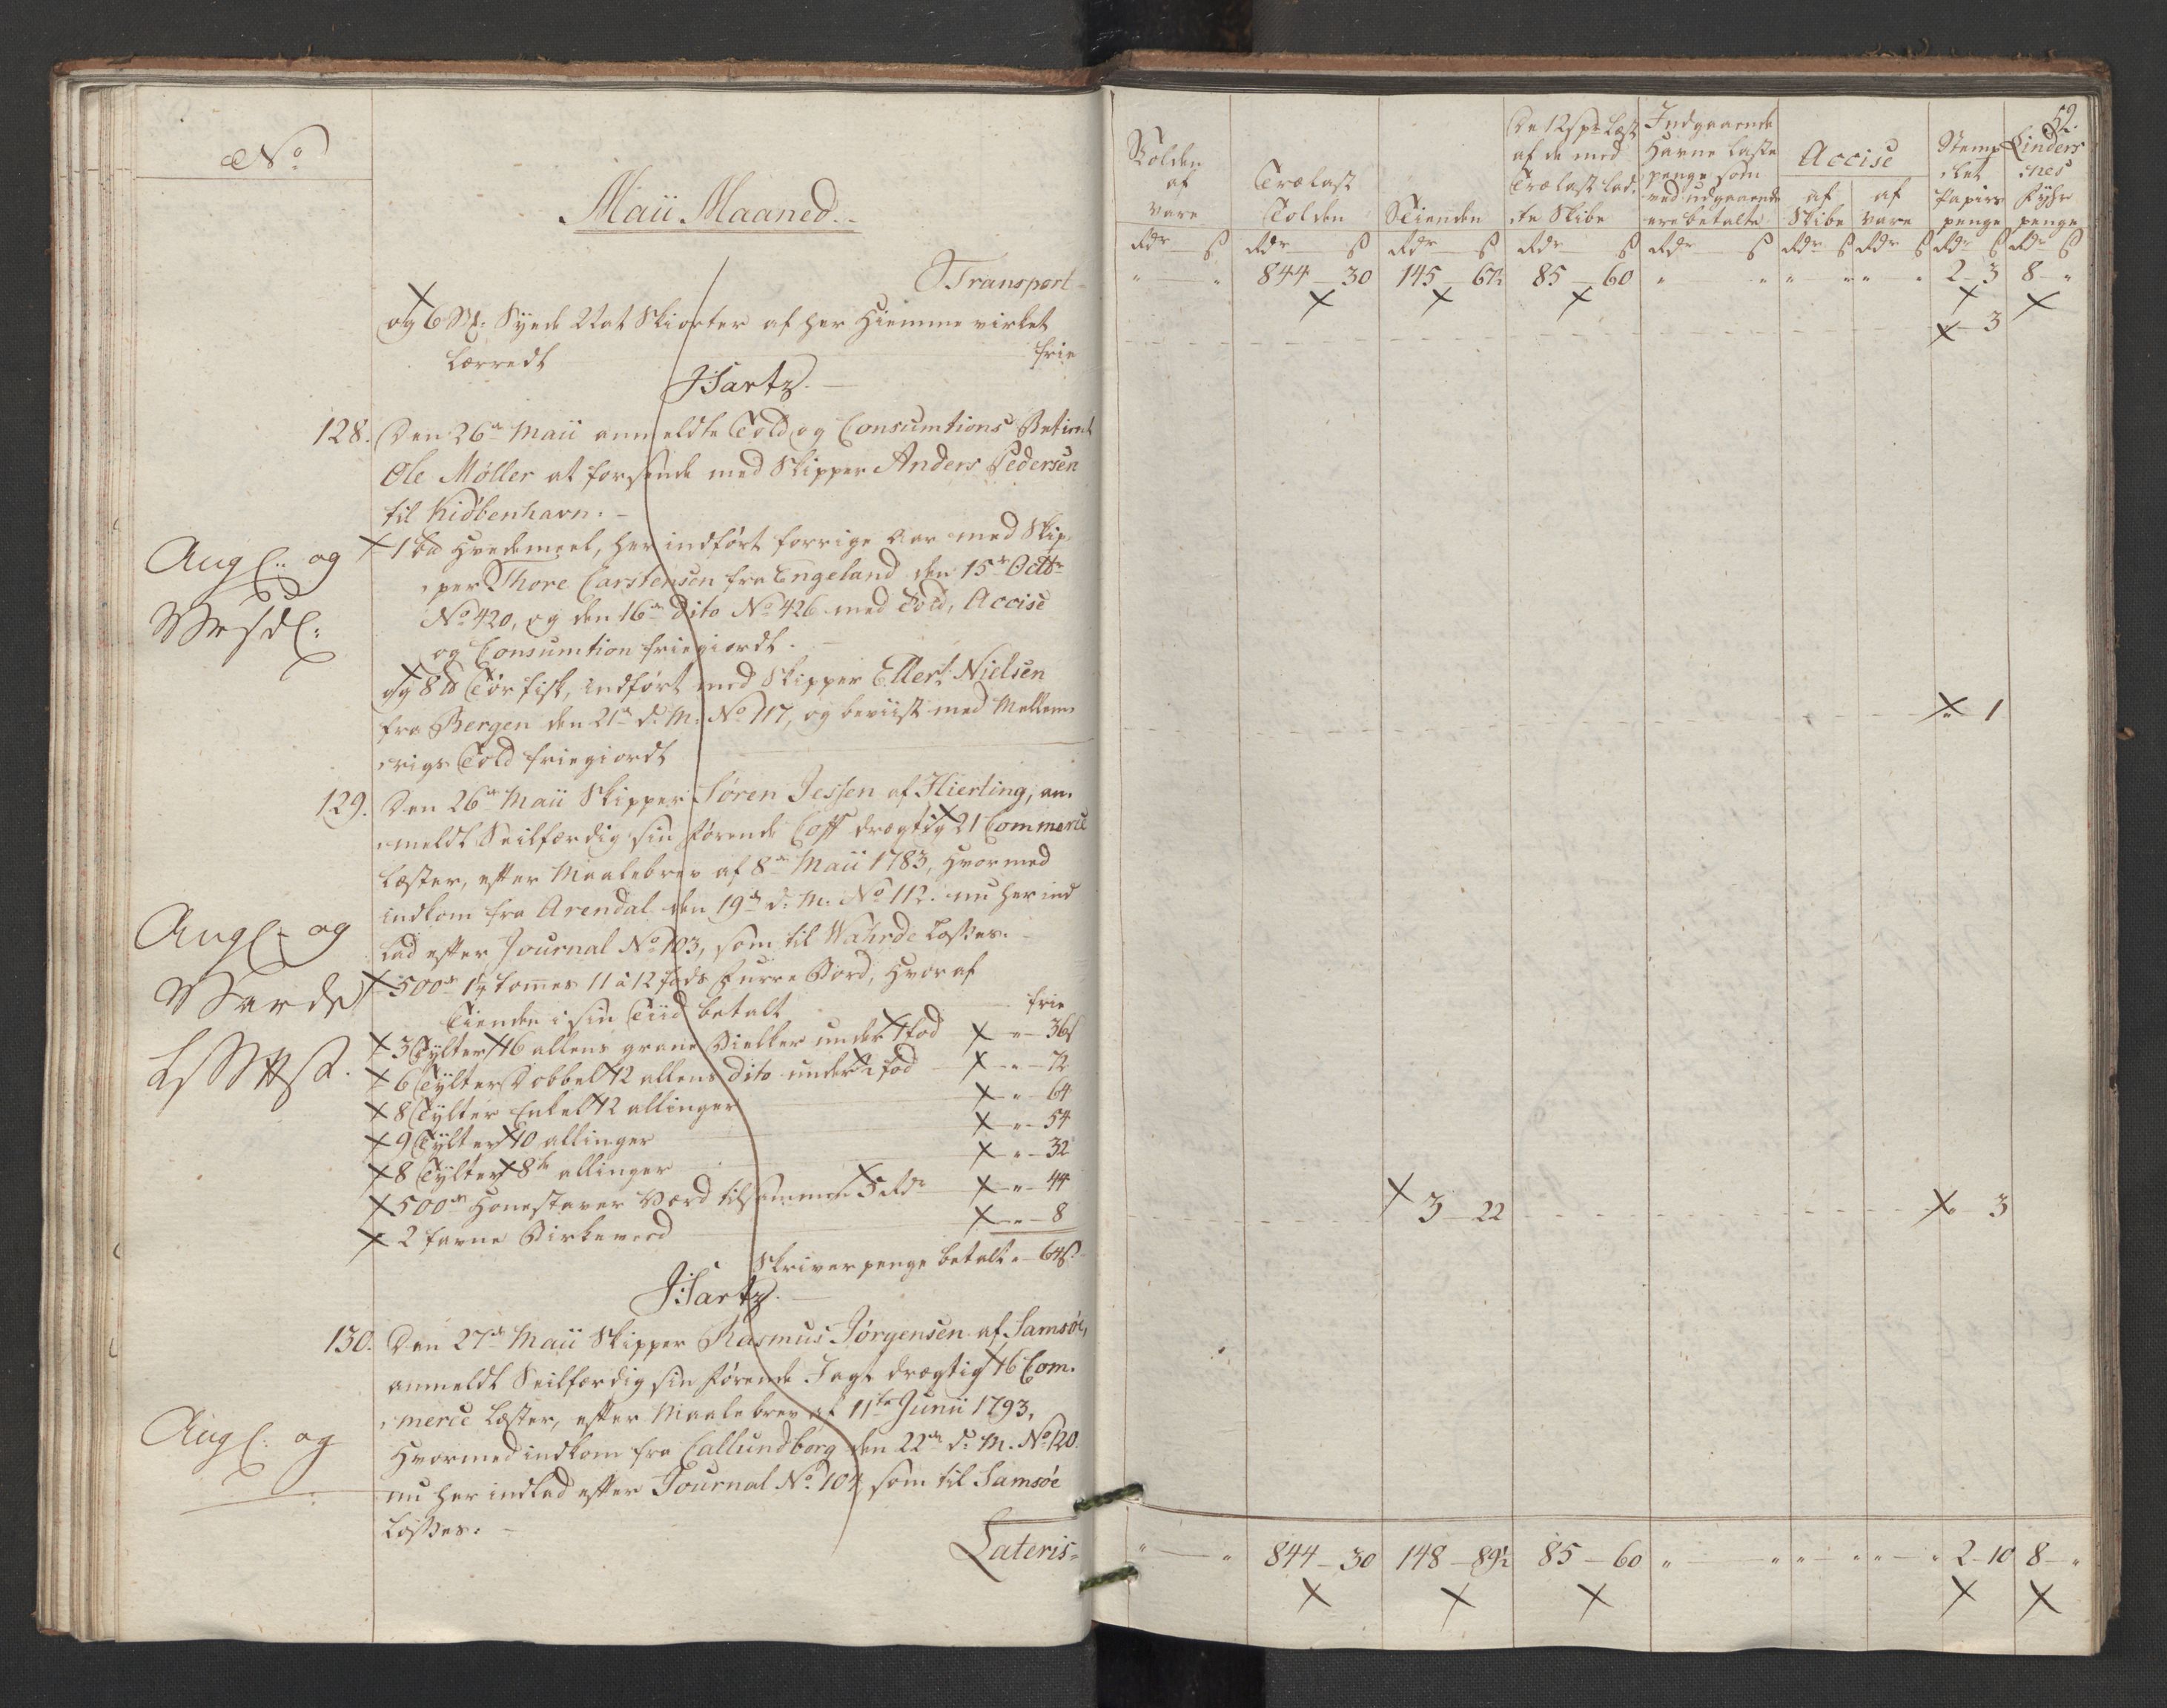 No
Maii Maaned.
Transport
og 6 St: Syede Nat Skiorter af her Hiemme virket
Lærredt frie
Hartz.
128. Den 26de Maii anmeldte Told og Consumtions Betient
Ole Møller at forsende med Skipper Anders Pedersen
til Kiøbenhavn.
1 td Hvedemeel, her indført forrige Aar med Skip-
per Thore Carstensen fra Engeland den 15de Octbr
No 420, og den 16de Dito No 426 med Told, Accise
og Consumtion friegiordt.
og 8 Tør fisk, indført med Skipper Ellert Nielsen
fra Bergen den 21de d: M: No 117, og beviist med Mellem-
rigs Told friegiordt
Angl. og
129. Den 26de Maii Skipper Søren Jessen af Hierting, an-
meldt Seilfærdig sin førende Coff drægtig 21 Commerce
Læster, efter Maalebrev af 8de Maii 1783, Hvormed
indkom fra Arendal den 19de d: M. No 112. nu her ind
lad efter Journal No 103, som til Wahrde Losses.
500de tommes 11 à 12 fods Furre Bord, Hvoraf
Tienden i sin Tiid betalt frie
3 Tylter 16 allens grane Bielker under 1 fod " 36ß
6 Tylter Dobbelt 12 allens dito under fod " 72
8 Tylter Enkel 12 allinger " 64
9 Tylter 10 allinger " 54
8 Tylter 8te allinger " 32
500de Honestaver Værd tilsammen 5 Rdr " 44
2 favne Birkeveed " 8
Skriverpenge betalt " 64ß
Hartz.
Angl. og
Warde
130. Den 27de Maii Skipper Rasmus Jørgensen af Samsøe,
anmeldt Seilfærdig sin førende Jagt drægtig 16 Com-
merce Læster, efter Maalebrev af 11te Junii 1793,
Hvormed indkom fra Callundborg den 22de d: M. No 120.
nu her indlad efter Journal No 104 som til Samsøe
Losses.
Angl. og
Lateris
52.
Tolden af Vare
Trælast Tolden
Tienden
De 12 sp Læst af de med Trælast lad-te Skibe
Indgaaende Havne Laste penge som ved udgaaende ere betalte
Accise
af Skibe
af Vare
Stemp-let Papirs penge
Linders-nes Fyhr penge
Rdr ß Rdr ß Rdr ß Rdr ß Rdr ß Rdr ß Rdr ß Rdr ß Rdr ß
" " 844 30 145 67½ 85 60 " " " " " " 2 3 8 "
" 3
" 1
3 22 " 3
" " 844 30 148 89½ 85 60 " " " " " " 2 10 8 "